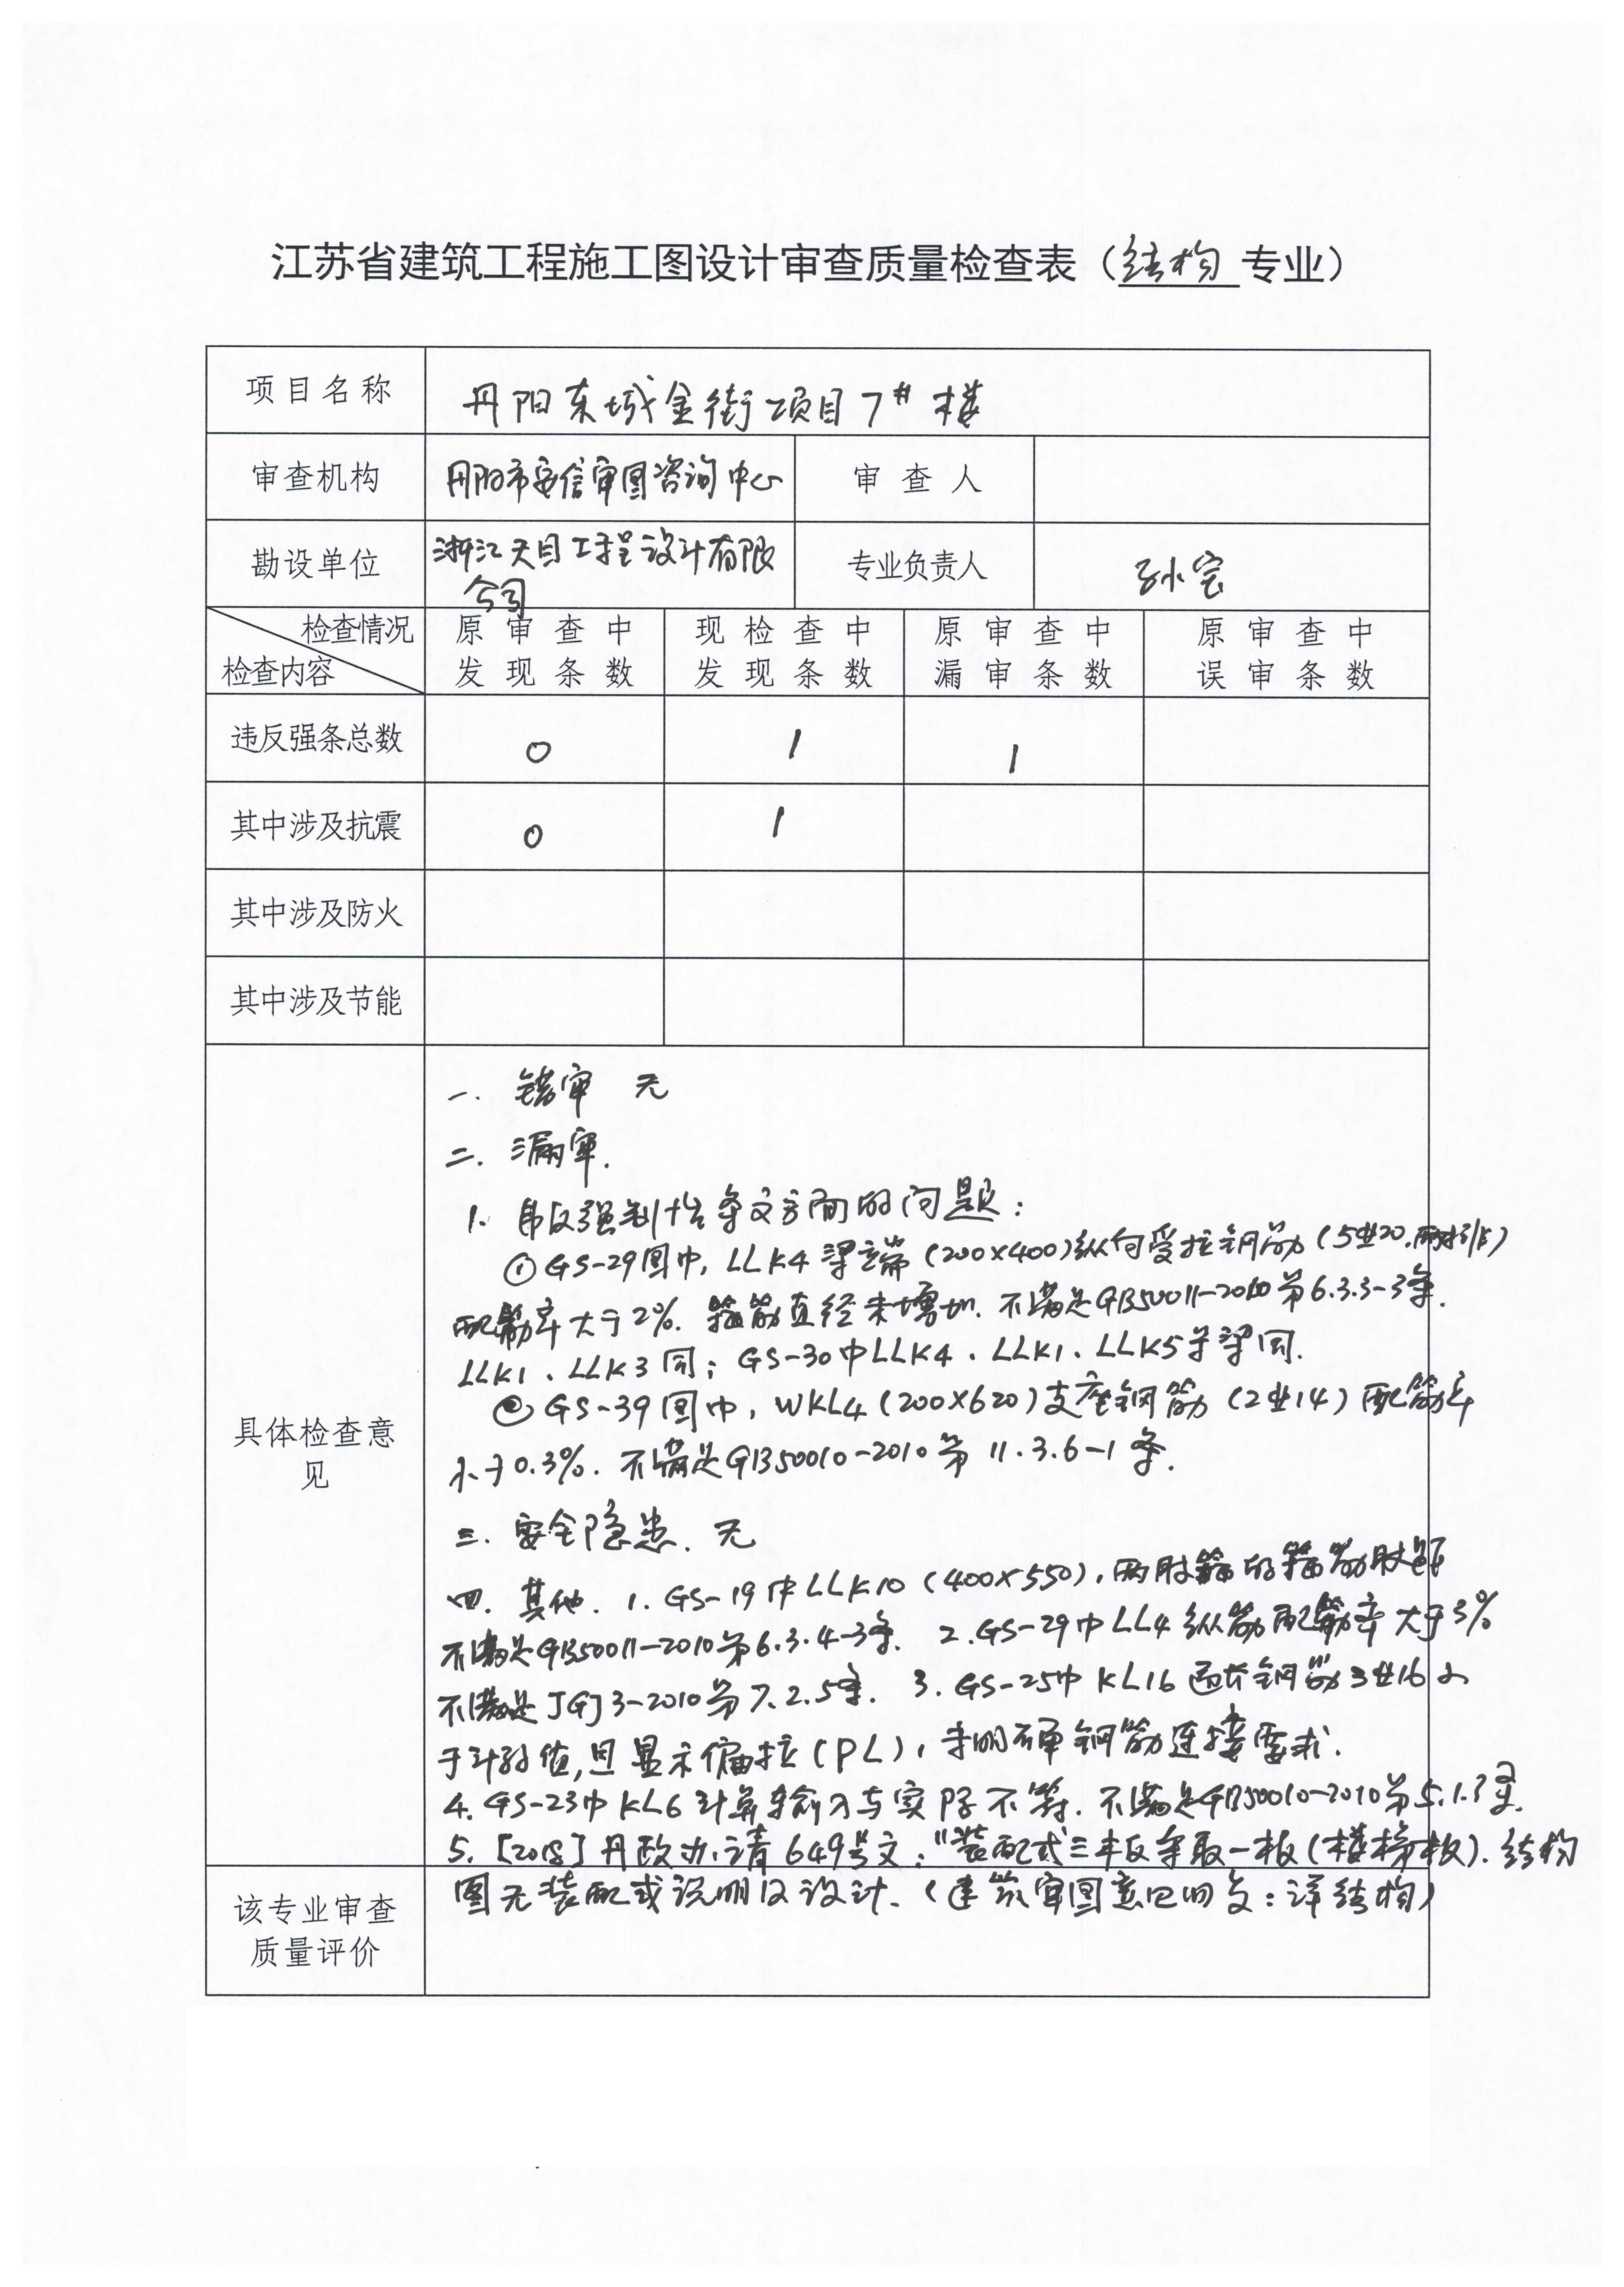 江苏省建筑工程施工图设计审查质量检查表（结构 专业）
项目名称
丹阳东城金街项目7#楼
审查机构
丹阳市安信审图咨询中心
审查人
勘设单位
浙江天目工程设计有限
公司
专业负责人
孙宏
检查情况
检查内容
原审查中
发现条数
现检查中
发现条数
原审查中
漏审条数
原审查中
误审条数
违反强条总数
0
1
1
其中涉及抗震
0
1
其中涉及防火
其中涉及节能
具体检查意
见
一. 错审 无
二. 漏审.
1. 违反强制性条文方面的问题：
① GS-29图中, LLK4梁端(200×400)纵向受拉钢筋(5⌀20.两排)
配筋率大于2%. 箍筋直径未增加. 不满足GB50011-2010第6.3.3-3条.
LLK1、LLK3同；GS-30中LLK4、LLK1、LLK5等梁同.
② GS-39图中, WKL4(200×620)支座钢筋(2⌀14)配筋率
小于0.3%. 不满足GB50010-2010第11.3.6-1条.
三. 安全隐患. 无
四. 其他. 1. GS-19中LLK10(400×550), 两肢箍的箍筋肢距
不满足GB50011-2010第6.3.4-3条. 2. GS-29中LL4纵筋配筋率大于3%
不满足JGJ3-2010第7.2.5条. 3. GS-25中KL16通长钢筋3⌀16小
于计算值, 且显示偏拉(PL), 未明确钢筋连接要求.
4. GS-23中KL6计算输入与实际不符. 不满足GB50010-2010第5.1.3条.
5. [2018]丹政办请649号文："装配式三板争取一板(楼梯板). 结构
图无装配式说明及设计. (建筑审图意见回复：详结构)
该专业审查
质量评价